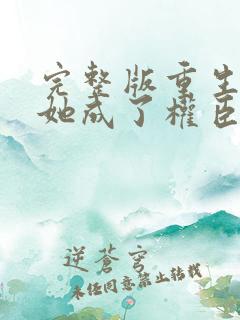 完整版重生
她成了權臣
逆蒼穹
未经同意禁止转载